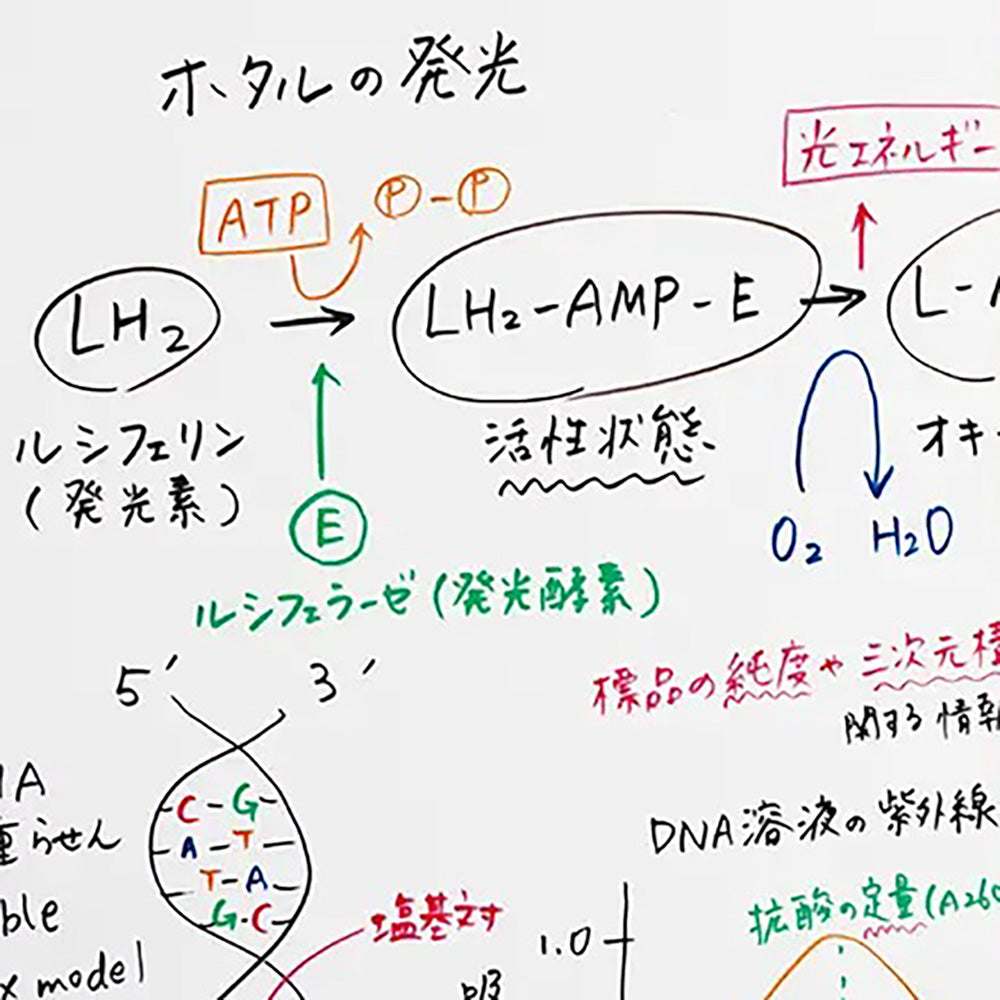 ホタルの発光
光エネルギー
ATP
P-P
LH2
LH2-AMP-E
L-
ルシフェリン
(発光素)
活性状態
オキ
E
O2 H2O
ルシフェラーゼ(発光酵素)
5′ 3′
標品の純度や三次元
関する情報
A
らせん
C-G
A-T
T-A
G-C
DNA溶液の紫外線
ble
model
塩基対
核酸の定量(A260
1.0
吸